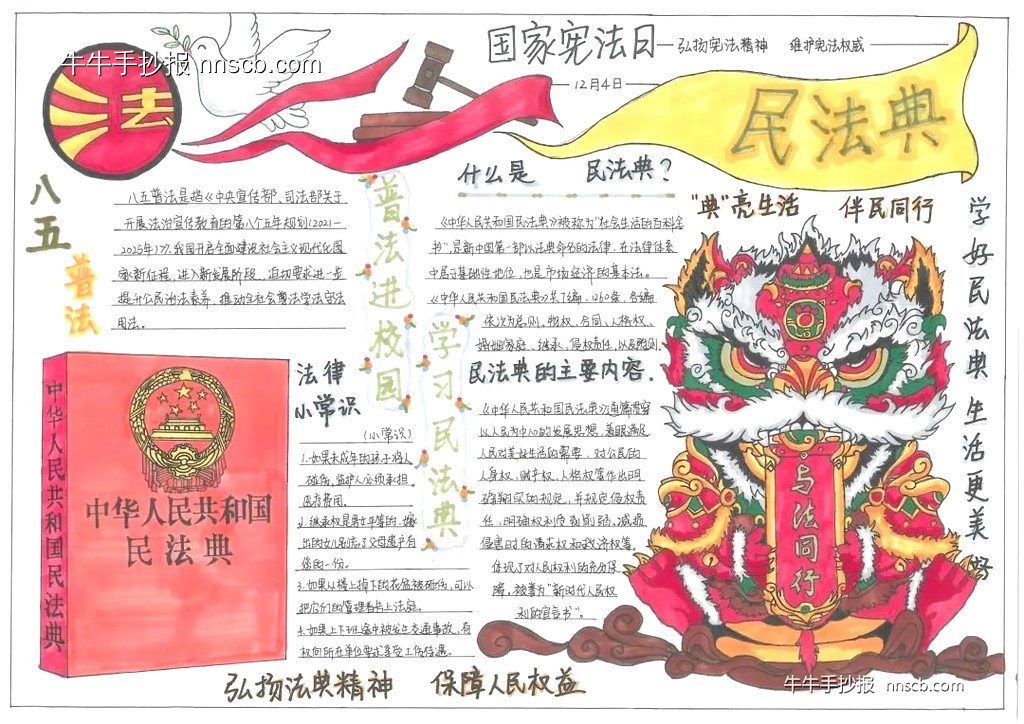 国家宪法日
弘扬宪法精神 维护宪法权威
12月4日
牛牛手抄报 nnscb.com
法
民法典
八五
普法
八五普法是指《中央宣传部、司法部关于
开展法治宣传教育的第八个五年规划(2021-
2025年)》。我国开启全面建设社会主义现代化国
家新征程,进入新发展阶段,迫切要求进一步
提升公民治法素养,推动全社会尊法学法守法
用法。
普法进校园
学习民法典
什么是 民法典?
《中华人民共和国民法典》被称为"社会生活的百科全
书",是新中国第一部以法典命名的法律,在法律体系
中居于基础性地位,也是市场经济的基本法。
《中华人民共和国民法典》共7编,1260条,各编
依次为总则、物权、合同、人格权、
婚姻家庭、继承、侵权责任,以及附则
民法典的主要内容.
《中华人民共和国民法典》通篇贯穿
以人民为中心的发展思想,着眼满足
人民对美好生活的需要,对公民的
人身权、财产权、人格权等作出明
确翔实的规定,并规定侵权责
任,明确权利受到削弱、减损、
侵害时的请求权和救济权等,
体现了对人民权利的充分保
障,被誉为"新时代人民权
利的宣言书"。
"典"亮生活 伴民同行
学好民法典 生活更美好
与法同行
中华人民共和国民法典
中华人民共和国
民法典
法律
小常识
(小常识)
1.如果未成年的孩子将人
碰伤,监护人必须承担
医疗费用。
2.继承权是男女平等的,嫁
出的女儿别忘了父母遗产有
你的一份。
3.如果从楼上掉下的花盆被砸伤,可以
把它们的管理者告上法庭。
4.如果上下班途中被发生交通事故,有
权向所在单位要求享受工伤待遇。
弘扬法典精神 保障人民权益
牛牛手抄报 nnscb.com